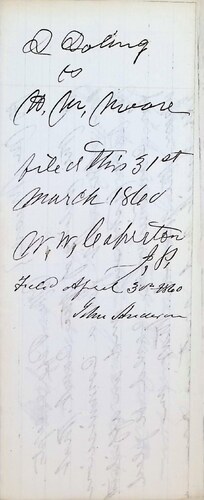 D Doling
vs
W, M, Moore
filed this 31st
March 1860
W, W, Caperton
J, P,
Filed April 3rd 1860
John Anderson